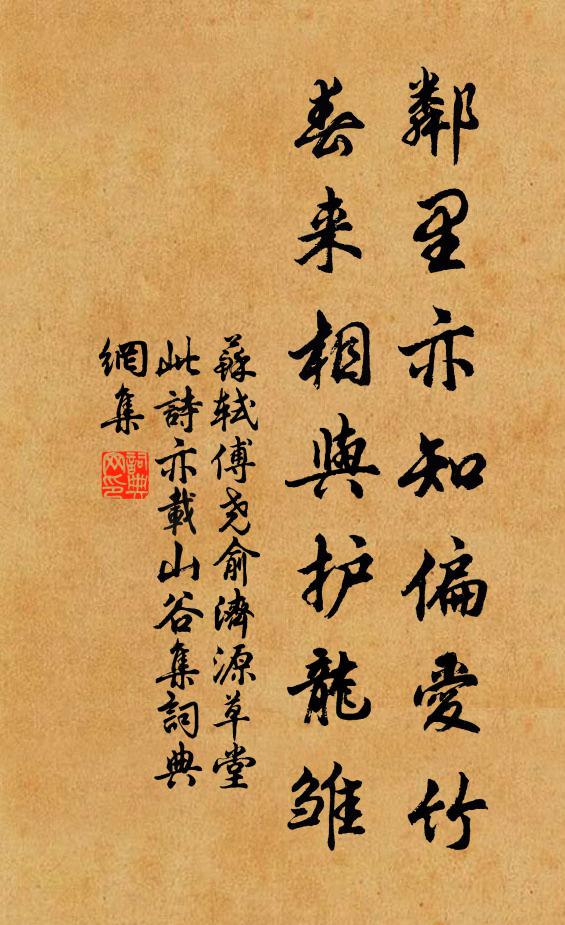 鄰里亦知偏愛竹
春来相與护龍雏
蘇軾傅尧俞濟源草堂
此詩亦載山谷集詞典
網集
詞典网印